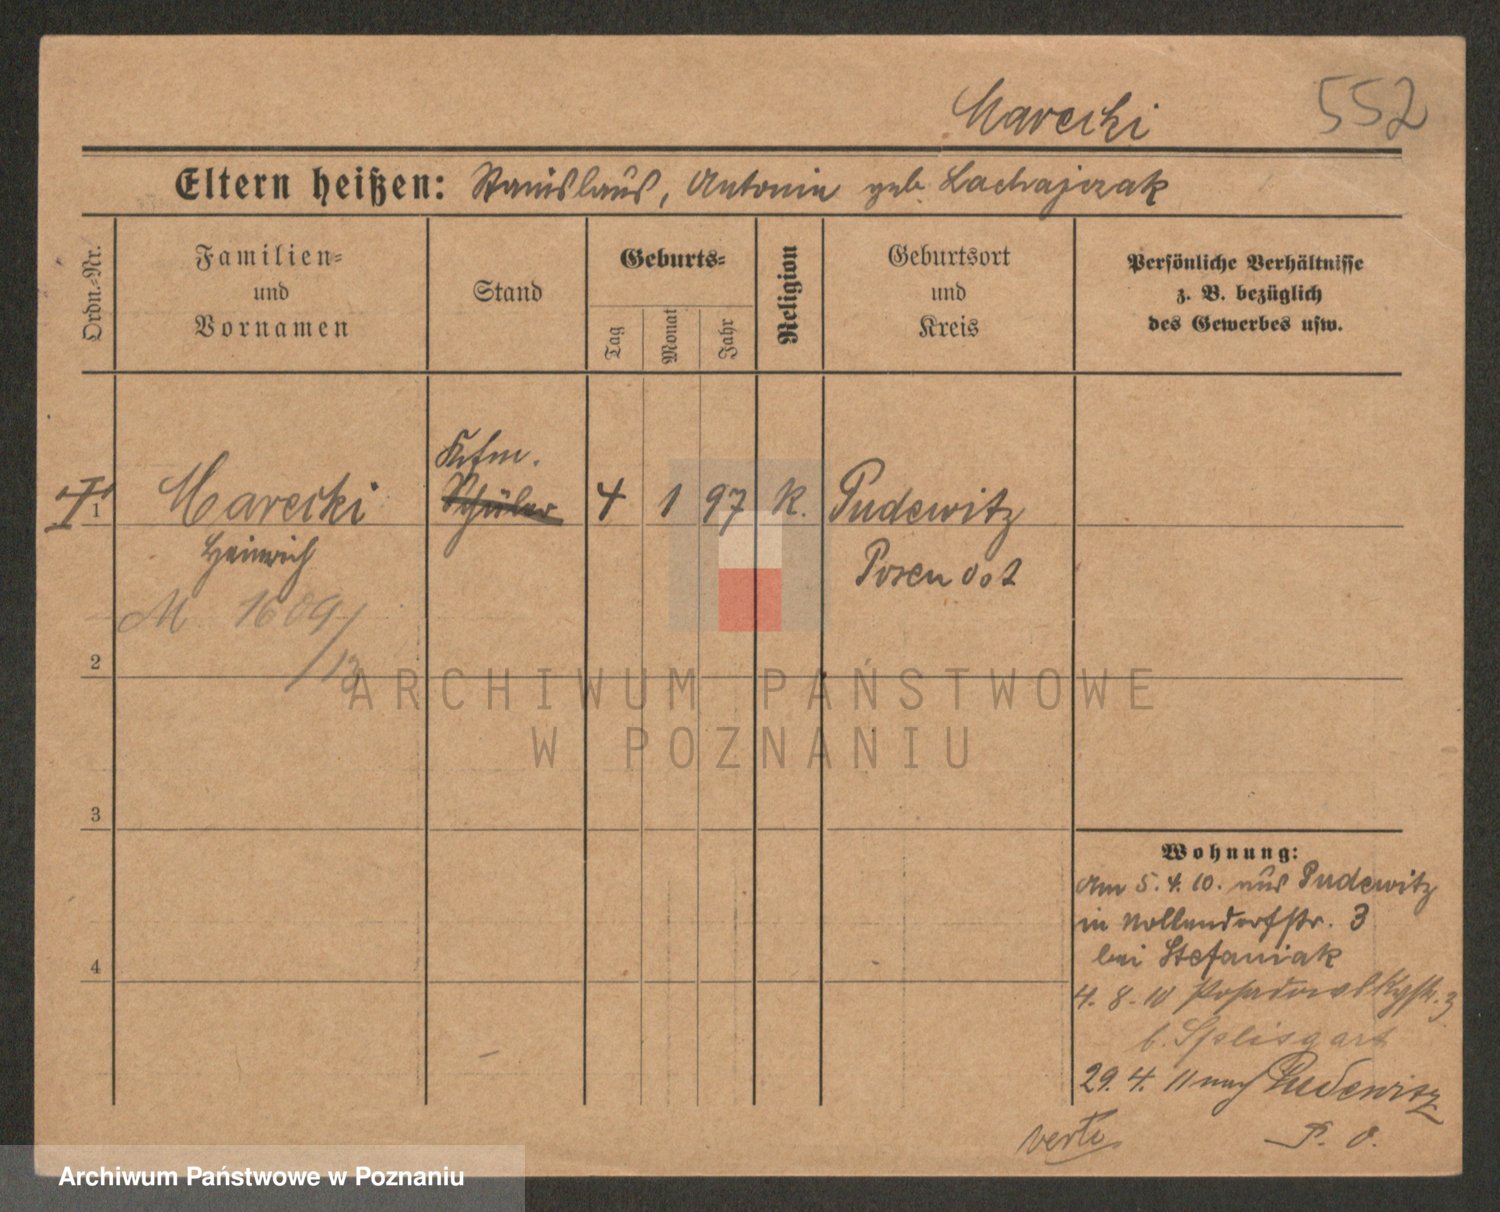 Marecki 552
Eltern heißen: Stanislaus, Antonie geb. Lachajczak
Ordn.-Nr.
Familien- und Vornamen
Stand
Geburts-
Tag
Monat
Jahr
Religion
Geburtsort und Kreis
Persönliche Verhältnisse
z. B. bezüglich
des Gewerbes usw.
Kfm.
I 1 Marecki Schüler 4 1 97 K. Pudewitz
Heinrich Posen Ost
M 1609/
/13
2
ARCHIWUM PAŃSTWOWE
W POZNANIU
3
Wohnung:
Am 5.4.10. aus Pudewitz
in Nollendorfstr. 3
bei Stefaniak
4
4.8.10 Posadowskystr. 3
b. Splisgart
29.4.11 nach Pudewitz
verte P. O.
Archiwum Państwowe w Poznaniu